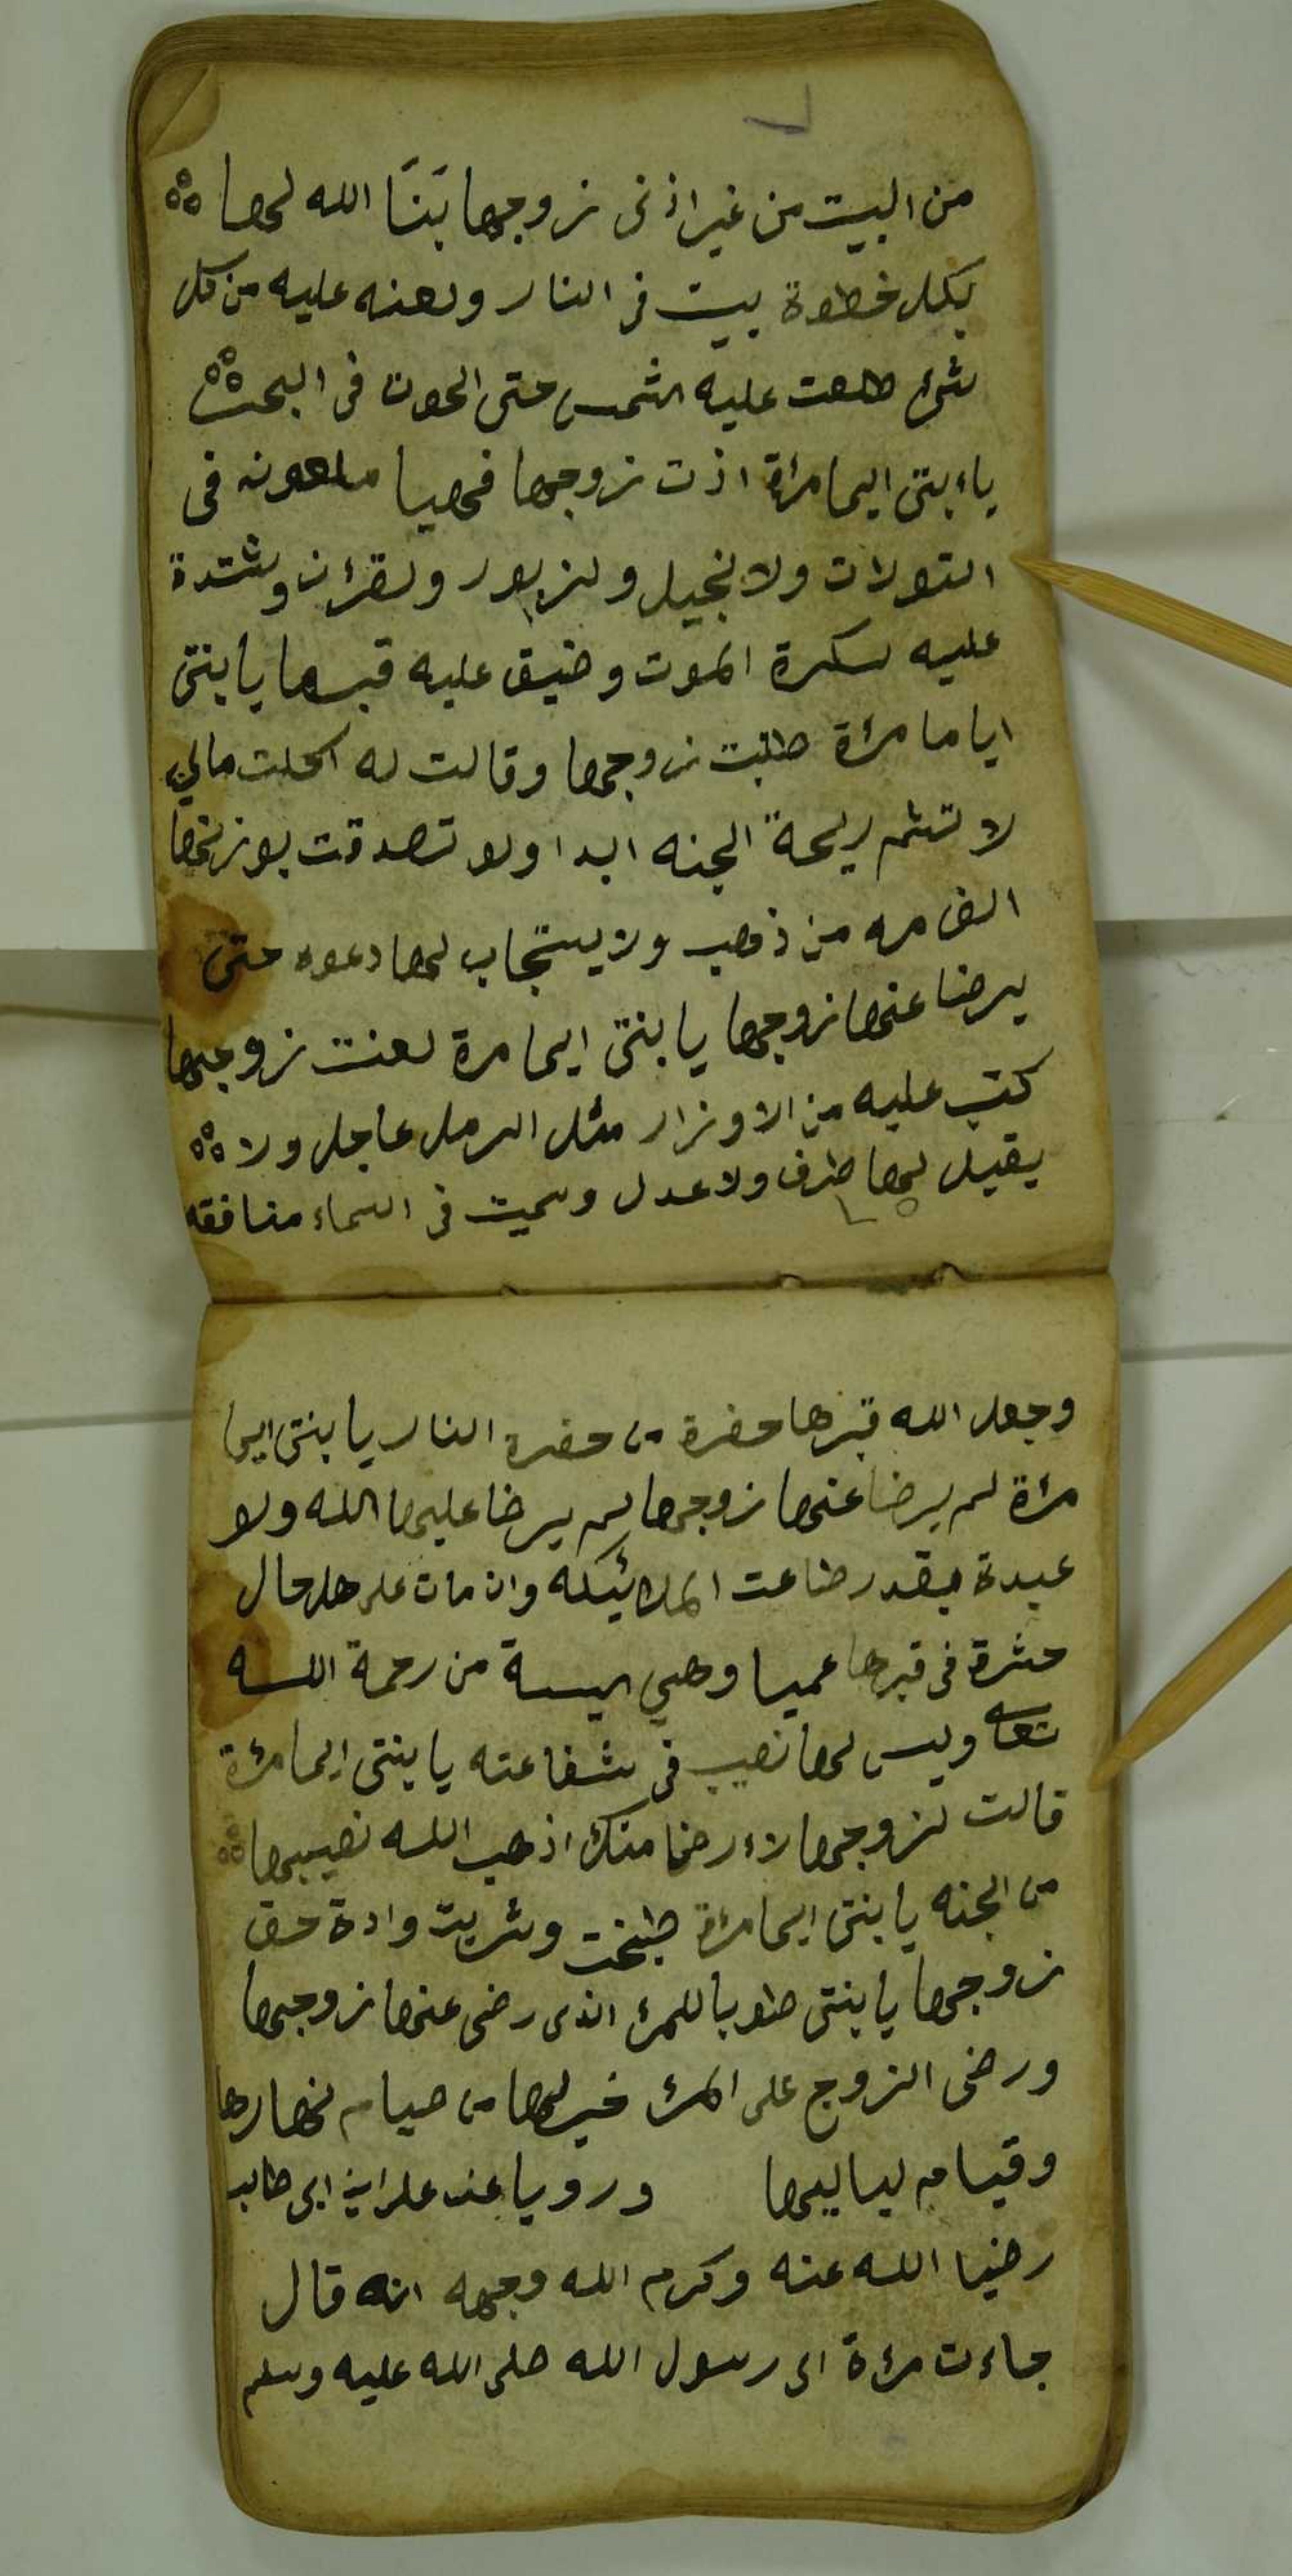 من البيت من غير اذن زوجها بَنَا الله لها
بكل خطوة بيت في النار ولعنه عليه من كل
شئ طلعت عليه الشمس حتى الحوت في البحر
ياءبنتى ايما مراة اذت زوجها فهيا ملعونه في
التورات ولانجيل ولزبور ولقرءان وشتدة
عليه سكرة الموت وضيق عليه قبرها يابنتى
اياما مرءة طلبت زوجها وقالت له اكلت مالي
لا تشم ريحة الجنه ابدا ولو تصدقت بوزنها
الف مره من ذهب ولا يستجاب لها دعوه حتى
يرضا عنها زوجها يا بنتى ايما مرة لعنت زوجها
كتب عليه من الاوزار مثل الرمل عاجل ولا
يقبل لها طرف ولا عدل وسميت في السماء منافقه
وجعل الله قبرها حفرة من حفره النار يا بنتى ايما
مرءة لم يرضا عنها زوجها لم يرضا عليها الله ولو
عبدة بقدر طاعت الملائيكه وان مات على هل حال
حشرة في قبرها عميا وهي ايسة من رحمة الله
تعالى وليس لها نصيب في شفاعته يا بنتى ايما مرءة
قالت لزوجها لاءرضا منك اذهب الله نصيبها
من الجنه يا بنتى ايما مرءة طبخت وشربت وادة حق
زوجها يا بنتى طوبا للمرء الذى رضى عنها زوجها
ورضى الزوج على المرء خير لها من صيام نهارها
وقيام لياليها ورويا عن على ابن ابى طالب
رضيا الله عنه وكرم الله وجهه انه قال
جاءت مرءة الى رسول الله صلى الله عليه وسلم